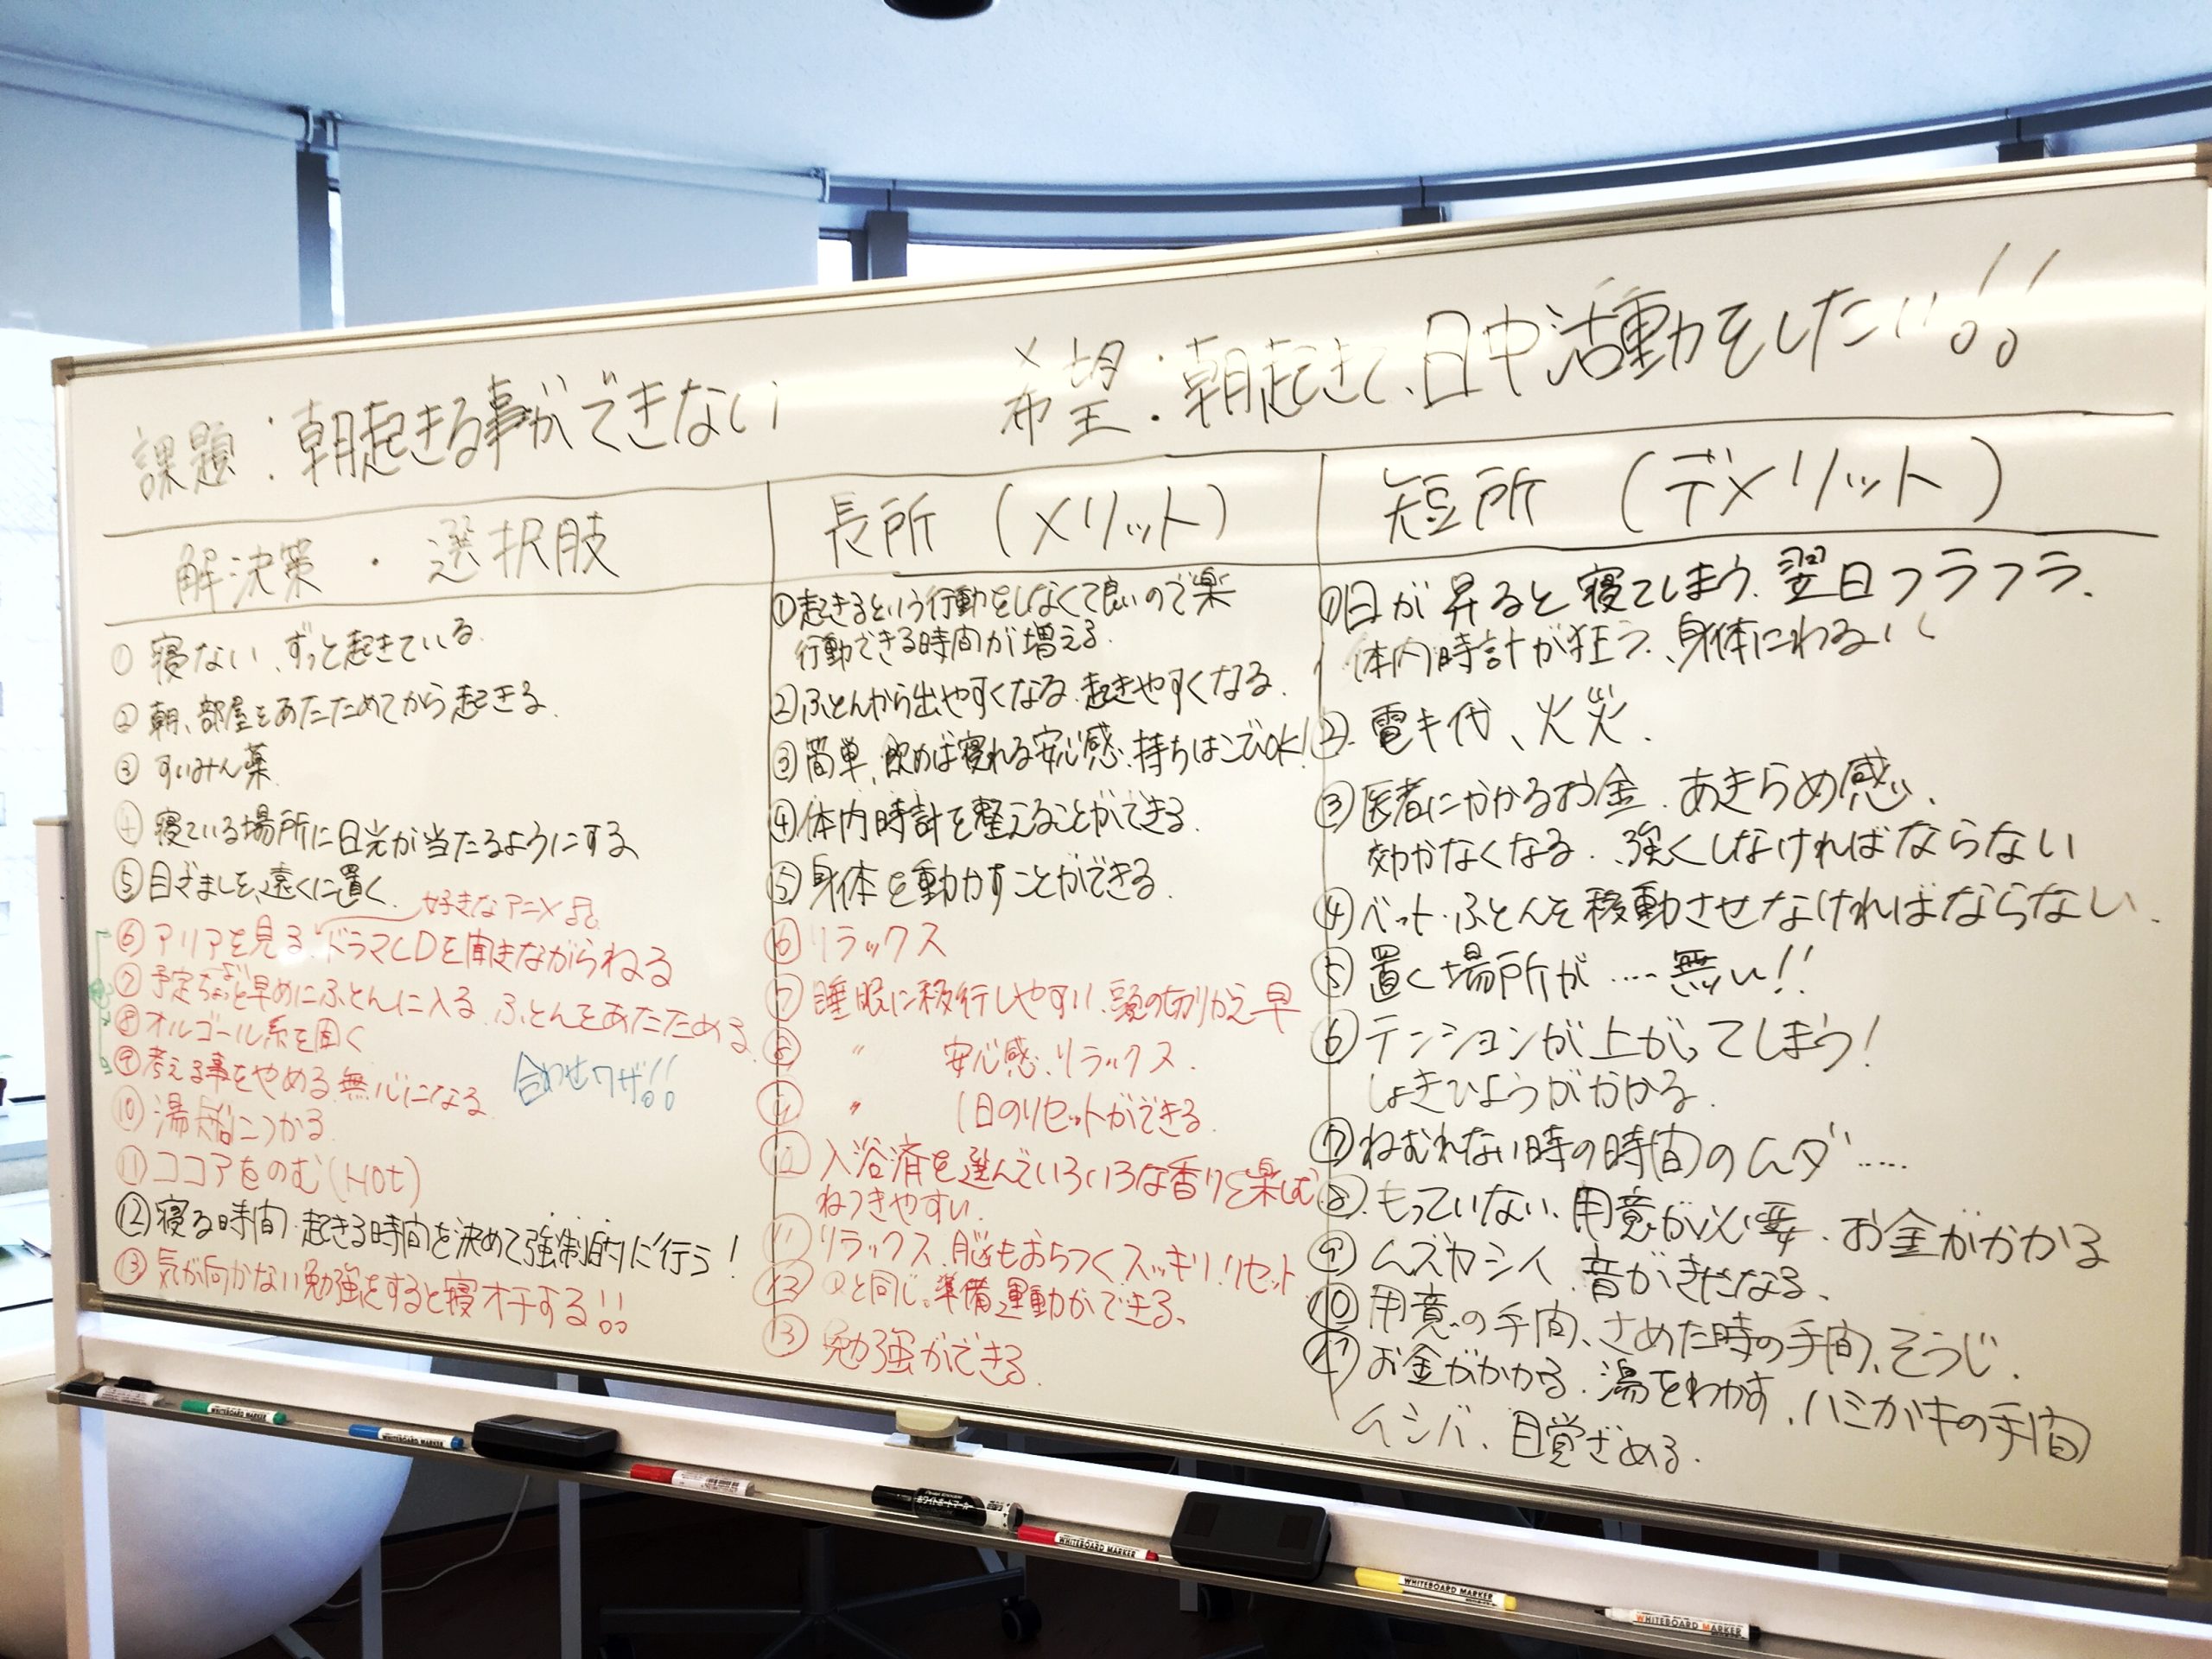 課題：朝起きる事ができない
希望：朝起きて、日中活動をしたい!!
解決策・選択肢
① 寝ない、ずっと起きている.
② 朝、部屋をあたためてから起きる.
③ すいみん薬.
④ 寝ている場所に日光が当たるようにする
⑤ 目ざましを、遠くに置く.
好きなアニメ
⑥ アリアを見る、ドラマCDを聞きながらねる
⑦ 予定ちょっと早めにふとんに入る、ふとんをあたためる.
⑧ オルゴール系を聞く
⑨ 考える事をやめる、無心になる
合わせワザ!!
⑩ 湯船につかる
⑪ ココアをのむ(Hot)
⑫ 寝る時間・起きる時間を決めて強制的に行う!
⑬ 気が向かない勉強をすると寝オチする!!
長所（メリット）
① 起きるという行動をしなくて良いので楽
行動できる時間が増える.
② ふとんから出やすくなる.起きやすくなる.
③ 簡単、飲めば寝れる安心感、持ちはこびOK!
④ 体内時計を整えることができる.
⑤ 身体を動かすことができる.
⑥ リラックス
⑦ 睡眠に移行しやすい、頭の切りかえ早
⑧ 〃 安心感、リラックス.
⑨ 〃 1日のリセットができる.
入浴済を選んでいろいろな香りを楽しむ
ねつきやすい.
⑪ リラックス、脳もおちつくスッキリ!リセット
①と同じ。準備運動ができる、
⑬ 勉強ができる.
短所（デメリット）
① 日が昇ると寝てしまう、翌日フラフラ.
体内時計が狂う、身体にわるい
②. 電キ代、火災.
③ 医者にかかるお金、あきらめ感、
効かなくなる、強くしなければならない
④ ベット・ふとんを移動させなければならない.
⑤ 置く場所が……無い!!
⑥ テンションが上がってしまう!
しょきひようがかかる.
⑦ ねむれない時の時間のムダ……
⑧. もっていない、用意が必要.お金がかかる
⑨ ムズカシイ、音がきになる.
⑩ 用意の手間、さめた時の手間、そうじ.
⑪ お金がかかる、湯をわかす、ハミガキの手間
ムシバ、目覚ざめる.
WHITEBOARD MARKER
WHITEBOARD MARKER
ホワイトボードマーカー
WHITEBOARD MARKER
WHITEBOARD MARKER
WHITEBOARD MARKER